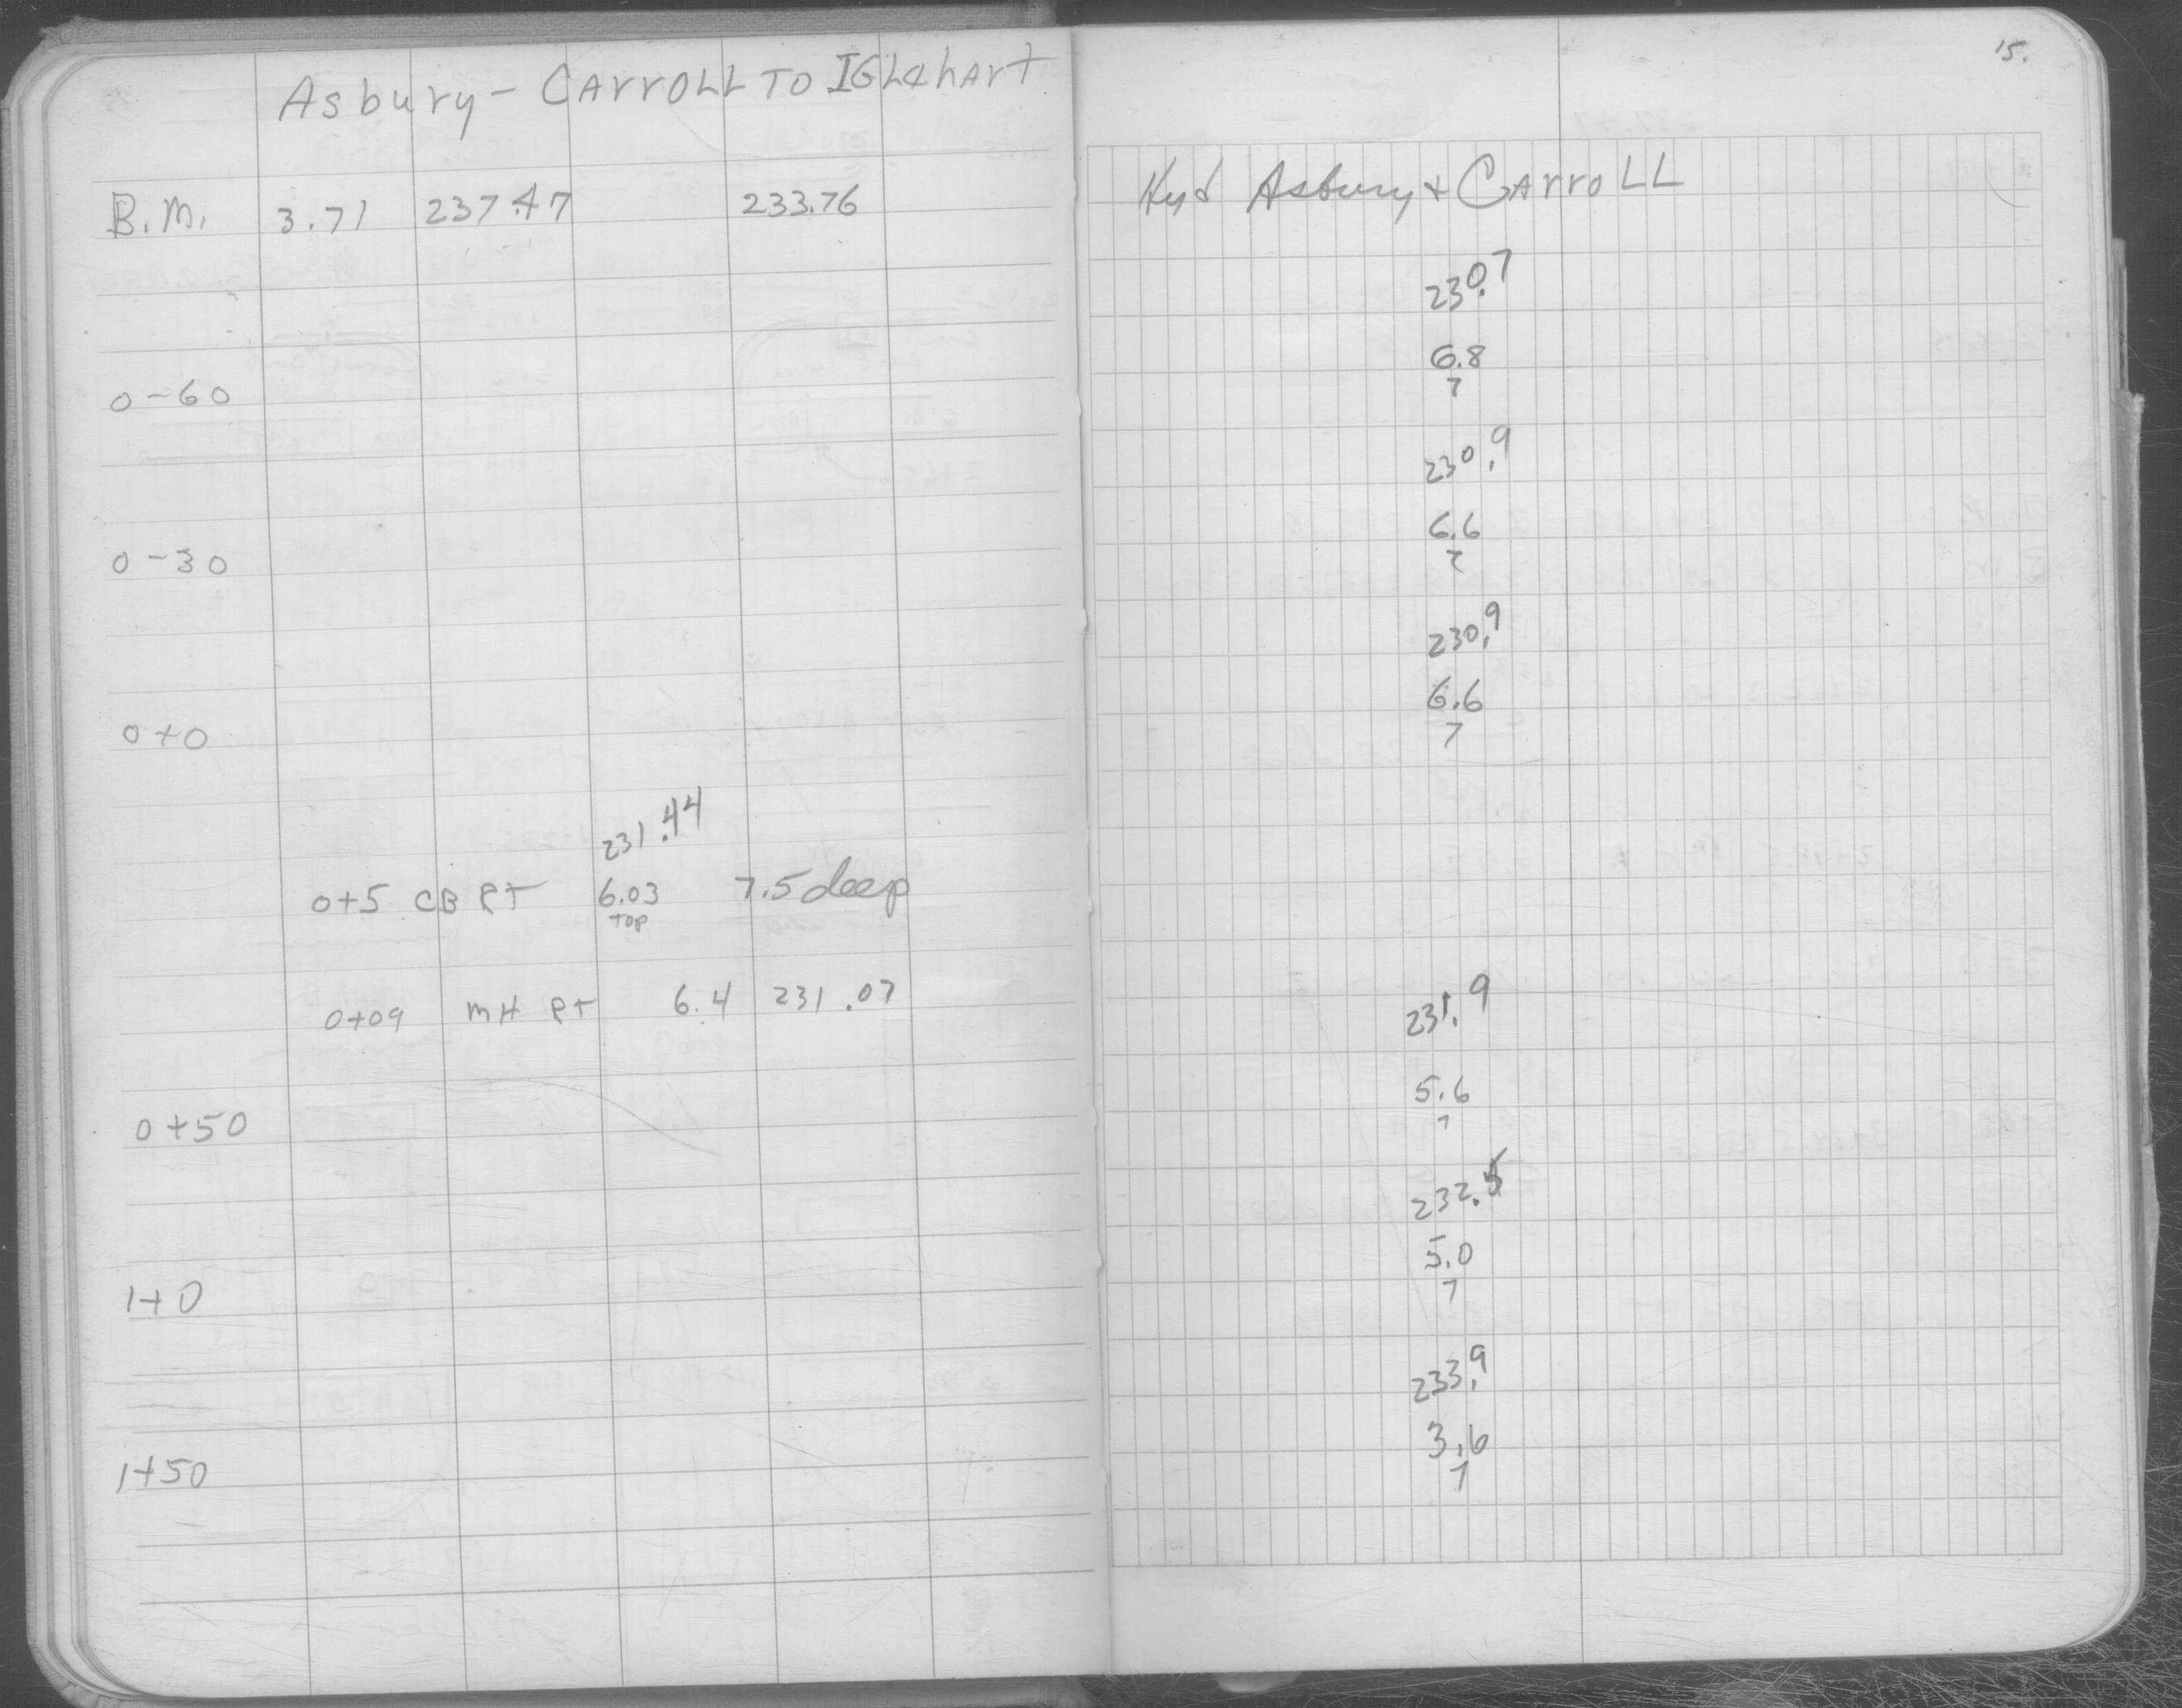 Asbury - CARROLL TO IGLehart
B.M. 3.71 237.47 233.76
0-60
0-30
0+0
231.44
0+5 CB RT 6.03 7.5 deep
TOP
0+09 MH RT 6.4 231.07
0+50
1+0
1+50
15.
Hyd Asbury + CARROLL
230.7
6.8
7
230.9
6.6
7
230.9
6.6
7
231.9
5.6
7
232.5
5.0
7
233.9
3.6
7